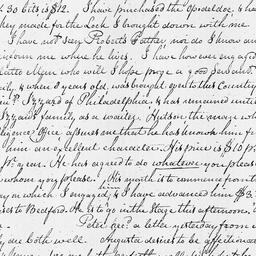 . 30 Cts is $12. I have purchased the Opodeldoc, & ha
hey made for the Lock I brought down with me
I have not seen Roberts Father nor do I know any
inform me where he lives. I have however engaged
little Man who will I hope prove a good servant.
ily, & when 8 years old, was brought over to this Country
Izzard of Philadelphia, & has remained until
Izzards family, as a waiter. Hutson the man who
ligence Office assures me that he has known him fr
him an excellent character. His price is $10 p
1st year. He has agreed to do whatever you please
whom you please. His month is to commence from t
y on which I engaged, & I have advanced him $3
ses to Bedford. He is to go in the Stage this afternoon,
Peter rec'd a letter yesterday from
y are both well. Augusta desires to be affectionat